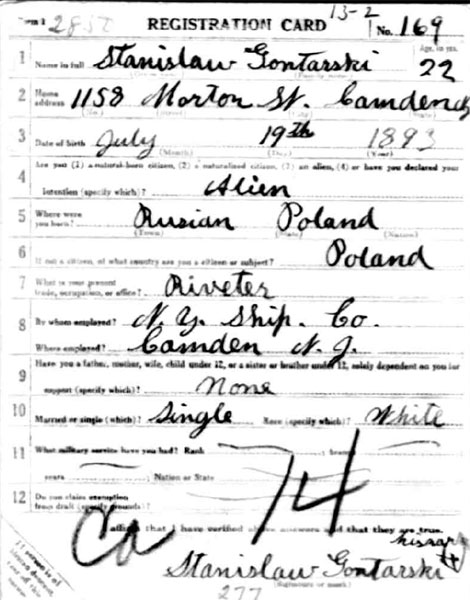 Form 1 2850 REGISTRATION CARD 13-2 No. 169
1 Name in full Stanislaw Gontarski Age, in yrs. 22
2 Home address 1158 Morton St. Camden
(No.) (Street) (City) (State)
3 Date of birth July 19th 1893
(Month) (Day) (Year)
4 Are you (1) a natural-born citizen, (2) a naturalized citizen, (3) an alien, (4) or have you declared your
intention (specify which)? Alien
5 Where were you born? Rusian Poland
(Town) (State) (Nation)
6 If not a citizen, of what country are you a citizen or subject? Poland
7 What is your present trade, occupation, or office? Riveter
8 By whom employed? N. Y. Ship. Co.
Where employed? Camden N. J.
9 Have you a father, mother, wife, child under 12, or a sister or brother under 12, solely dependent on you for
support (specify which)? None
10 Married or single (which)? Single Race (specify which)? White
11 What military service have you had? Rank branch
years Nation or State
12 Do you claim exemption from draft (specify grounds)?
74
Ca
I affirm that I have verified above answers and that they are true.
his
Stanislaw Gontarski
(Signature or mark)
277